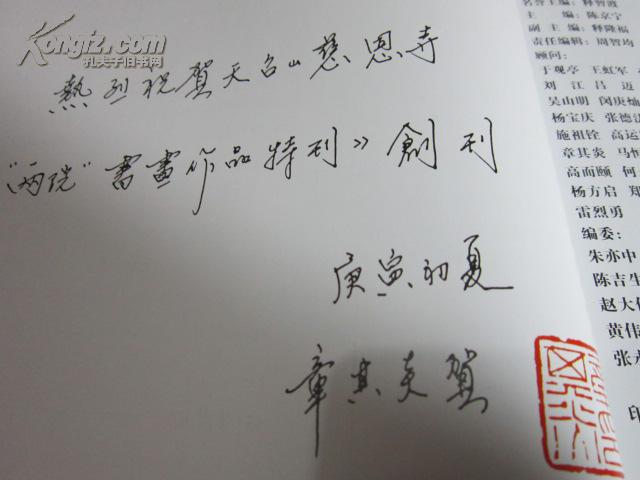 Kongfz.com
孔夫子旧书网
熱烈祝賀天台山慈恩寺
“两院”書畫作品特刊》創刊
庚寅初夏
章其炎賀
名誉主编：释智渡
主　编：陈京宁
副 主 编：释隆福
责任编辑：周智均
顾问：
于观亭　王虹军
刘　江　吕　迈
吴山明　闵庚灿
杨宝庆　张德
施祖铨　高运
章其炎　马恒
高而颐　何
杨方启　郑
雷烈勇
编委：
朱亦中
陈吉生
赵大
黄伟
张
印